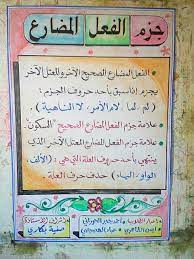 جزم الفعل المضارع
الفعل المضارع الصحيح الآخر والمعتل الآخر
يجزم إذا سبق بأحد حروف الجزم :
( لم ، لما ، لام الأمر ، لا الناهية )
علامة جزم الفعل المضارع الصحيح "السكون"
علامة جزم الفعل المضارع المعتل الآخر الذي
ينتهي بأحد حروف العلة التي هي : ( الألف
الواو ، الياء ) حذف حرف العلة